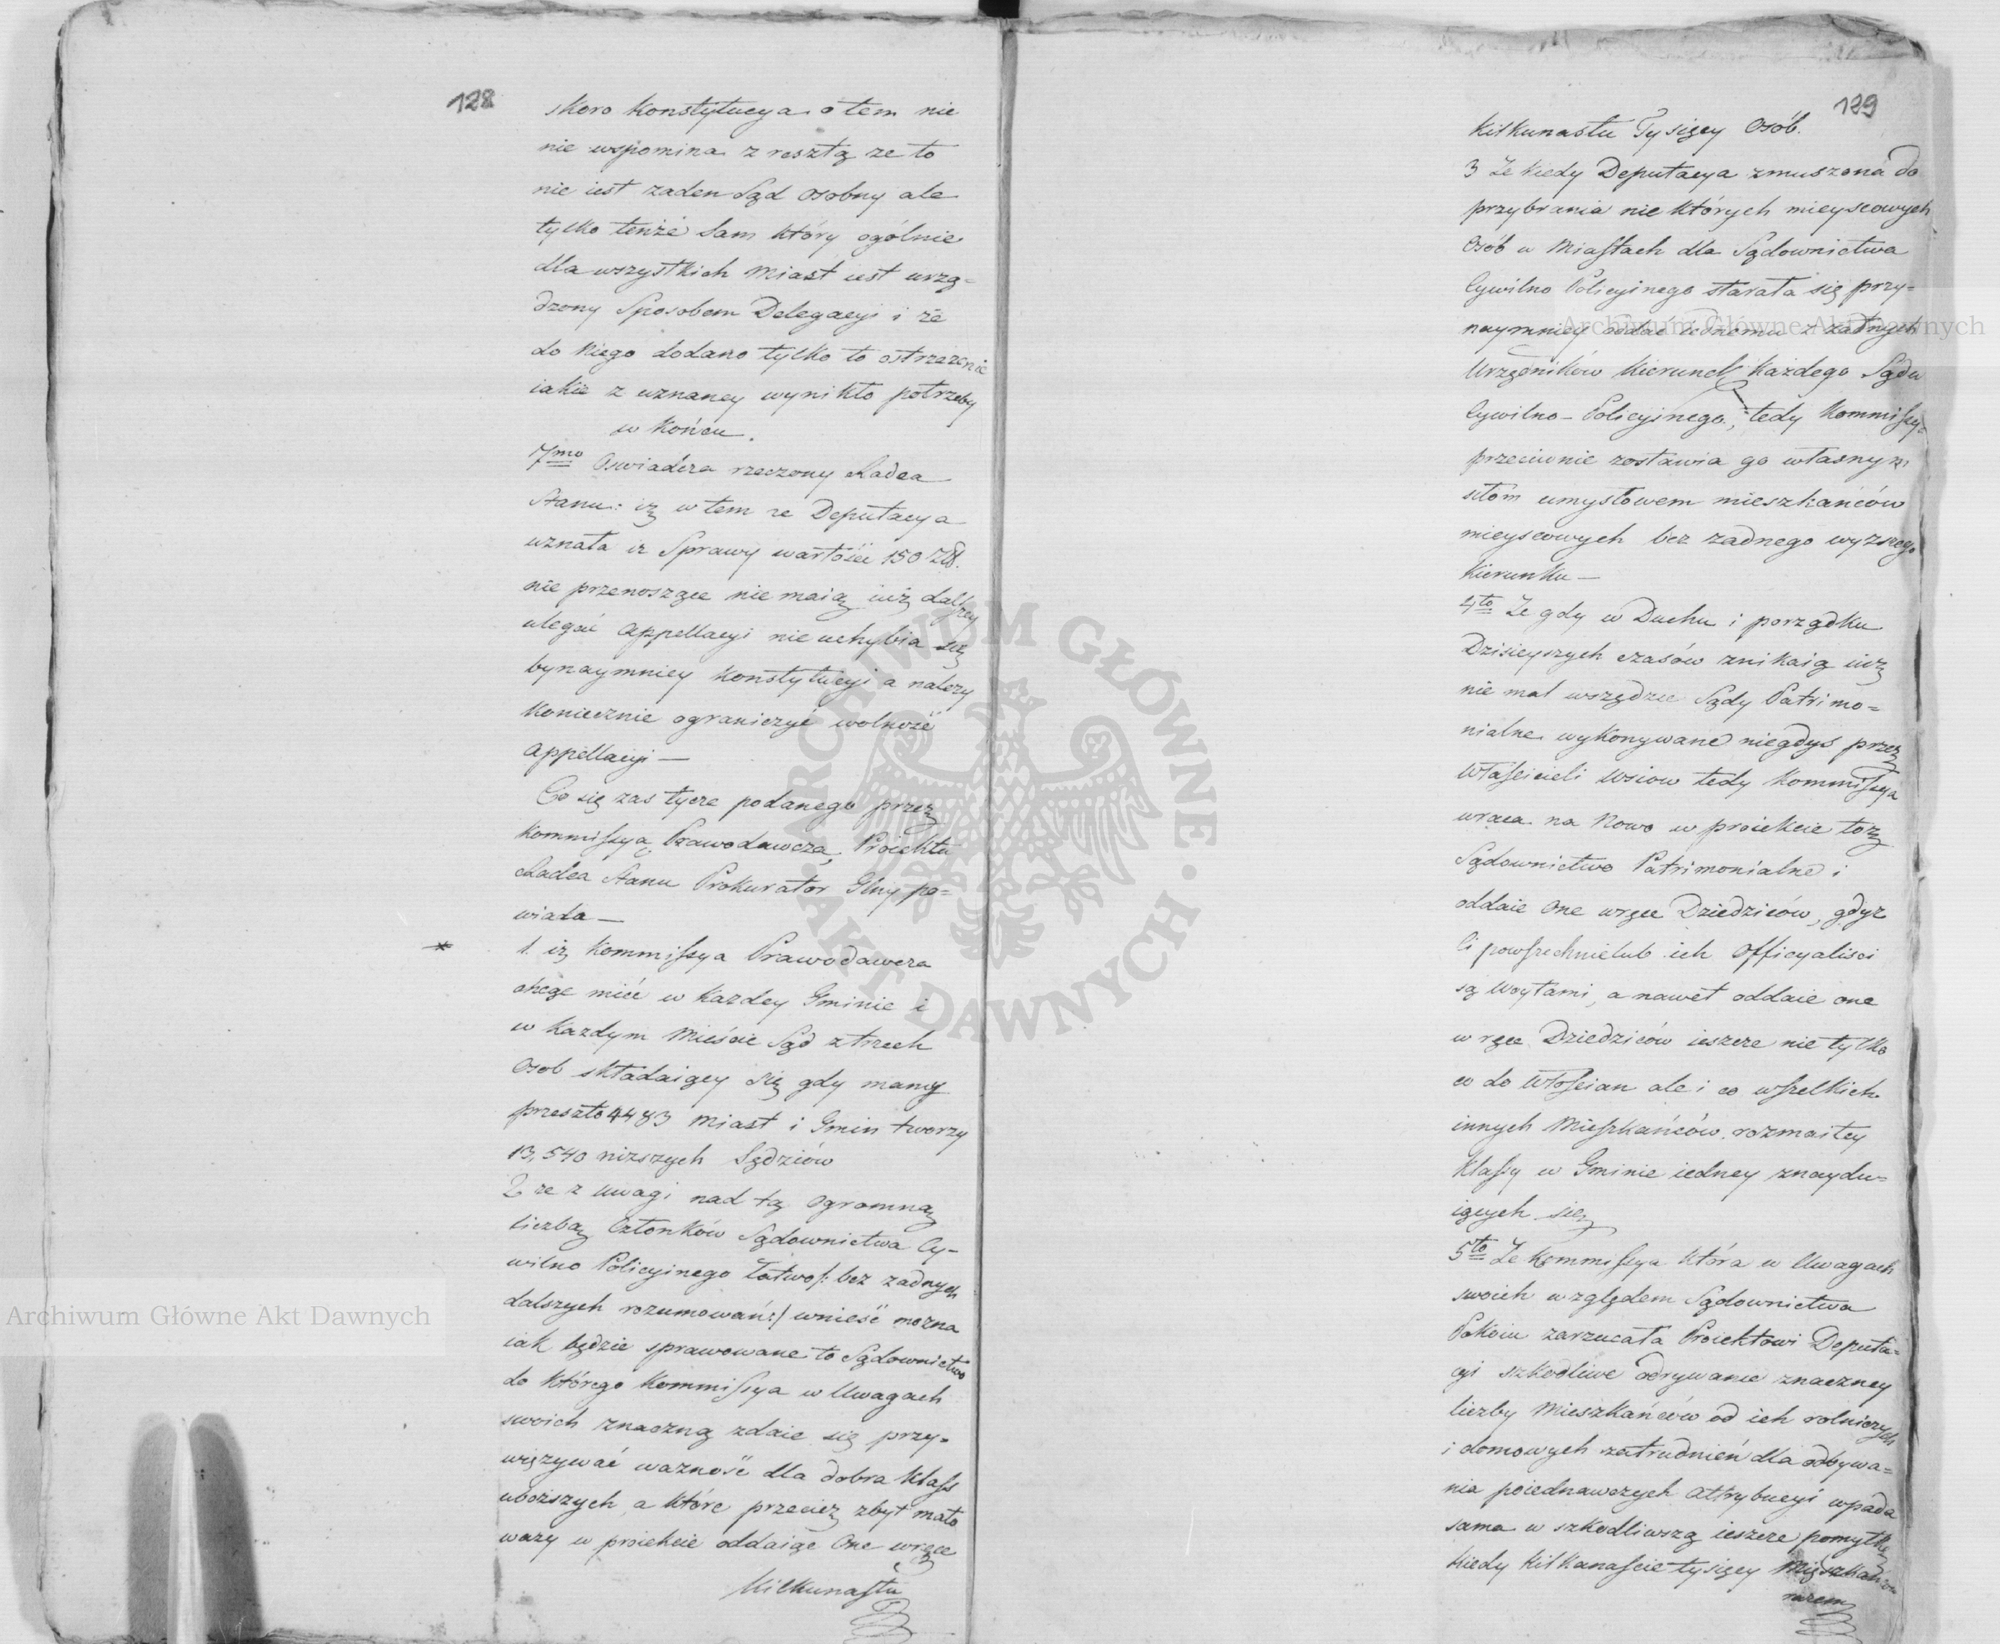 128
skoro Konstytucya o tem nie
nie wspomina z resztą ze to
nie iest zaden Sąd osobny ale
tylko tenże sam który ogólnie
dla wszystkich Miast iest urzą=
dzony Sposobem Delegacyi i że
do niego dodano tylko to ostrzezenie
iakie z uznaney wynikło potrzeby
w końcu.
7mo Oswiadcza rzeczony Radca
Stanu: iż w tem ze Deputacya
uznała iz Sprawy wartości 150 Zł.
nie przenoszące nie maią iuż dalszey
ulegać Appellacyi nie uchybia się
bynaymniey Konstytucyi a nalezy
koniecznie ograniczyć wolność
Appellacyi —
Co się zas tycze podanego przez
Kommissyą Prawodawczą Proiektu
Radca Stanu Prokurator Głny po=
wiada —
1. iż Kommissya Prawodawcza
chcąc mieć w każdey Gminie i
w Kazdym Mieście Sąd z trzech
Osob składaiący się gdy mamy
przeszło 4483 Miast i Gmin tworzy
13,540 nizszych Sędziów
2 ze z uwagi nad tą ogromną
liczbą Członków Sądownictwa Cy=
wilno Policyinego łatwo /: bez zadnych
dalszych rozumowań :/ wnieść mozna
iak będzie sprawowane to Sądownictwo
do którego Kommissya w Uwagach
swoich znaczną zdaie się przy=
więzywać wazność dla dobra klass
uboższych, a które przeciez zbyt mało
wazy w proiekcie oddaiąc One w ręce
Kilkunastu
129
Kilkunastu Tysięcy Osób.
3 Ze kiedy Deputacya zmuszona do
przybrania nie których mieyscowych
Osób w Miastach dla Sądownictwa
Cywilno Policyinego starała się przy=
naymniey oddać iednemu z zadnych
Urzędników kierunek każdego Sądu
Cywilno – Policyinego, tedy Kommissya
przeciwnie zostawia go własnym
siłom umysłowem mieszkańców
mieyscowych bez zadnego wyzszego
kierunku —
4to Ze gdy w Duchu i porządku
Dzisieyszych czasów znikaią iuż
nie mal wszędzie Sądy Patrimo=
nialne wykonywane niegdyś przez
Właścicieli wsiow tedy Kommissya
wraca na Nowo w proiekcie toż
Sądownictwo Patrimonialne i
oddaie One w ręce Dziedziców, gdyz
Ci powszechnie lub ich Officyaliści
są Woytami, a nawet oddaie one
w ręce Dziedziców ieszcze nie tylko
co do Włoscian ale i co wszelkich
innych Mieszkańców rozmaitey
klassy w Gminie iedney znaydu=
iących się
5to Ze Kommissya która w Uwagach
swoich względem Sądownictwa
Pokoiu zarzucała Proiektowi Deputa=
cyi szkodliwe odrywanie znaczney
liczby Mieszkańców od ich rolniczych
i domowych zatrudnień dla odbywa=
nia poiednawczych attrybucyi wpada
sama w szkodliwszą ieszcze pomyłkę
kiedy kilkanaście tysięcy Mieszkańców
razem
Archiwum Główne Akt Dawnych
Archiwum Główne Akt Dawnych
ARCHIWUM GŁÓWNE · AKT DAWNYCH ·